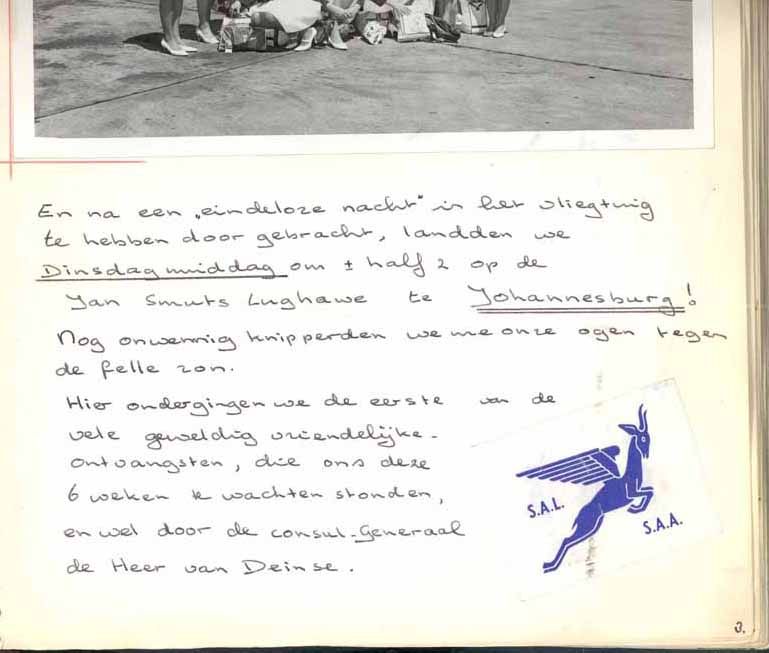 En na een „eindeloze nacht" in het vliegtuig
te hebben door gebracht, landden we
Dinsdagmiddag om ± half 2 op de
Jan Smuts Lughawe te Johannesburg!
Nog onwennig knipperden we me onze ogen tegen
de felle zon.
Hier ondergingen we de eerste van de
vele geweldig vriendelijke-
ontvangsten, die ons deze
6 weken te wachten stonden,
en wel door de consul-Generaal
de Heer van Deinse.
S.A.L.
S.A.A.
3.